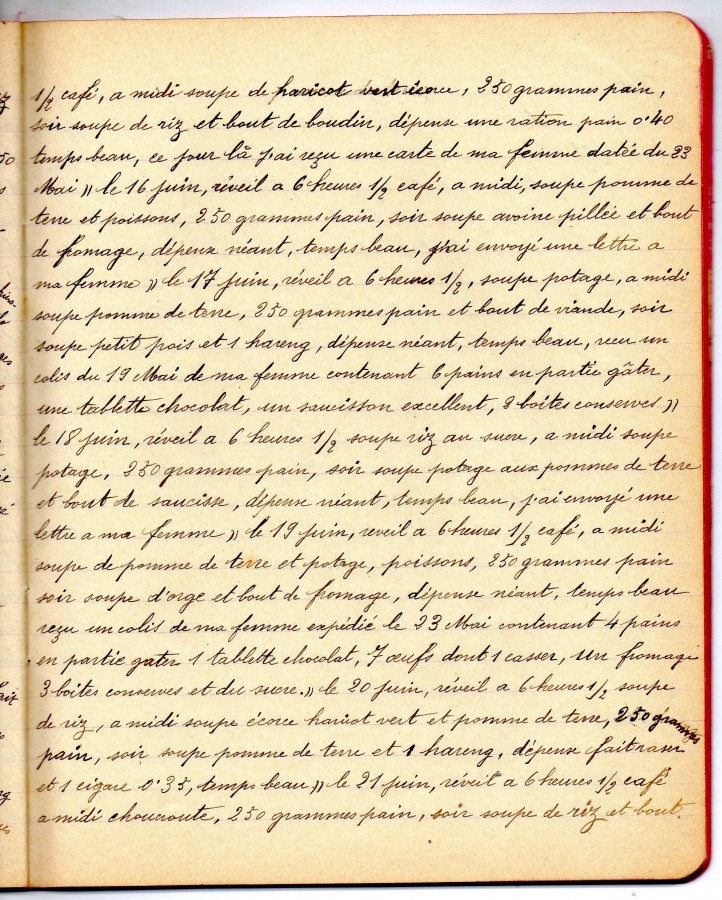 1/2 café, a midi soupe de haricot vert écorce, 250 grammes pain,
soir soupe de riz et bout de boudin, dépense une ration pain 0.40
temps beau, ce jour là j'ai reçu une carte de ma femme datée du 23
Mai )) le 16 juin, réveil a 6 heures 1/2 café, a midi, soupe pomme de
terre et poissons, 250 grammes pain, soir soupe avoine pillée et bout
de fromage, dépense néant, temps beau, j'ai envoyé une lettre a
ma femme )) le 17 juin, réveil a 6 heures 1/2, soupe potage, a midi
soupe pomme de terre, 250 grammes pain et bout de viande, soir
soupe petit pois et 1 hareng, dépense néant, temps beau, recu un
colis du 19 Mai de ma femme contenant 6 pains en partie gâter,
une tablette chocolat, un saucisson excellent, 3 boites conserves ))
le 18 juin, réveil a 6 heures 1/2 soupe riz au sucre, a midi soupe
potage, 250 grammes pain, soir soupe potage aux pommes de terre
et bout de saucisse, dépense néant, temps beau, j'ai envoyé une
lettre a ma femme )) le 19 juin, reveil a 6 heures 1/2 café, a midi
soupe de pomme de terre et potage, poissons, 250 grammes pain
soir soupe d'orge et bout de fromage, dépense néant, temps beau
reçu un colis de ma femme expédié le 23 Mai contenant 4 pains
en partie gater 1 tablette chocolat, 7 œufs dont 1 casser, un fromage
3 boites conserves et du sucre. )) le 20 juin, réveil a 6 heures 1/2 soupe
de riz, a midi soupe écorce haricot vert et pomme de terre, 250 grammes
pain, soir soupe pomme de terre et 1 hareng, dépense fait raser
et 1 cigare 0.35, temps beau )) le 21 juin, réveil a 6 heures 1/2 café
a midi choucroute, 250 grammes pain, soir soupe de riz et bout.